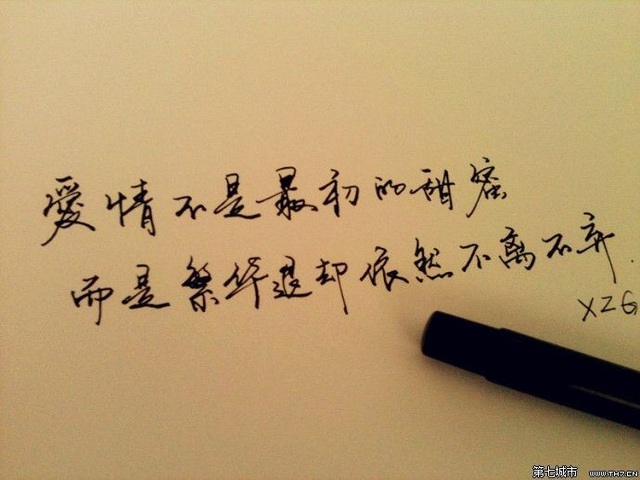 愛情不是最初的甜蜜
而是繁华退却依然不离不弃.
XZG
第七城市 WWW.TH7.CN